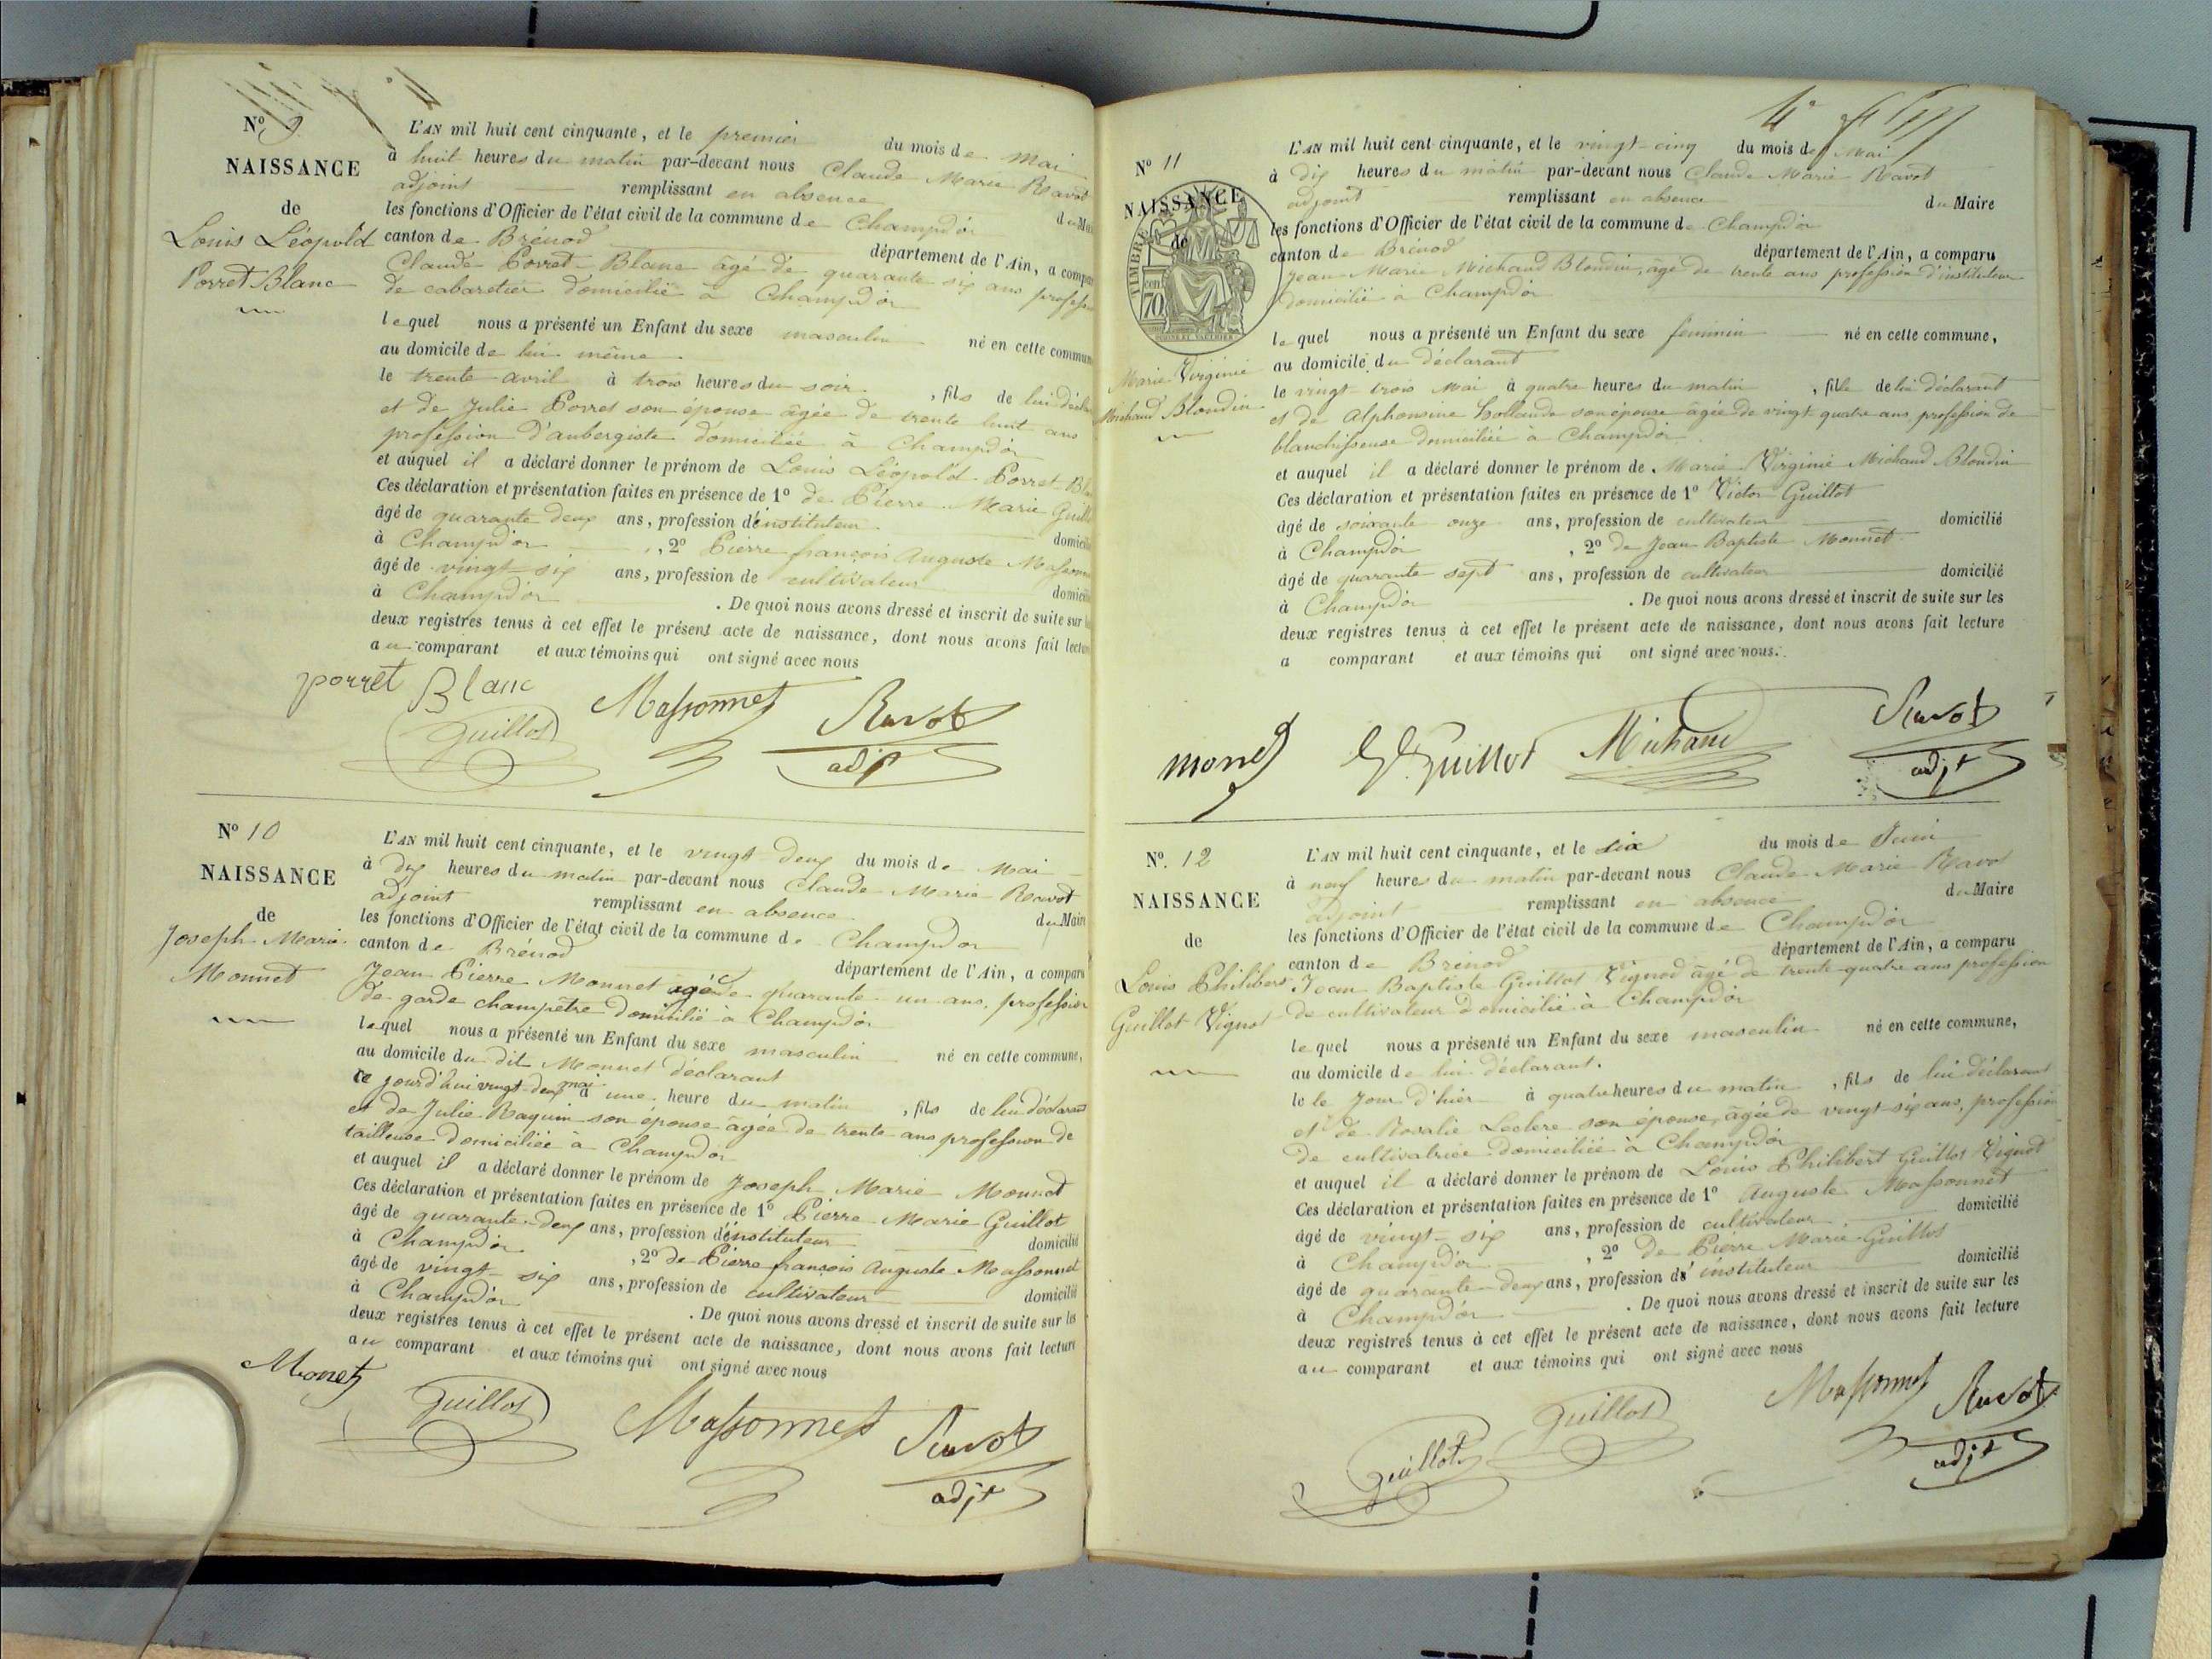 Nº 9
NAISSANCE
de
Louis Léopold
Porret Blanc
L'AN mil huit cent cinquante, et le premier du mois de Mai
à huit heures du matin par-devant nous Claude Marie Ravot
adjoint remplissant en absence du Mai
les fonctions d'Officier de l'état civil de la commune de Champdor
canton de Brénod département de l'Ain, a compar
Claude Porret-Blanc âgé de quarante six ans profess
de cabaretier domicilié à Champdor
lequel nous a présenté un Enfant du sexe masculin né en cette commun
au domicile de lui même
le trente avril à trois heures du soir, fils de lui décla
et de Julie Porret son épouse âgée de trente huit ans
profession d'aubergiste domiciliée à Champdor
et auquel il a déclaré donner le prénom de Louis Léopold Porret-Bla
Ces déclaration et présentation faites en présence de 1º de Pierre Marie Guill
âgé de quarante deux ans, profession d'instituteur domicili
à Champdor, 2º Pierre françois Auguste Massonn
âgé de vingt-six ans, profession de cultivateur domicili
à Champdor. De quoi nous avons dressé et inscrit de suite sur
deux registres tenus à cet effet le présent acte de naissance, dont nous avons fait lectur
au comparant et aux témoins qui ont signé avec nous
porret Blanc
Guillot Massonnet Ravot
adjt
Nº 10
NAISSANCE
de
Joseph Marie
Monnet
L'AN mil huit cent cinquante, et le vingt-deux du mois de Mai
à dix heures du matin par-devant nous Claude Marie Ravot
adjoint remplissant en absence du Maire
les fonctions d'Officier de l'état civil de la commune de Champdor
canton de Brénod département de l'Ain, a comparu
Jean Pierre Monnet agé de quarante-un-ans, profession
de garde champêtre domicilié à Champdor
lequel nous a présenté un Enfant du sexe masculin né en cette commune,
au domicile du dit Monnet déclarant
ce jourd'hui vingt-deux mai à une heure du matin, fils de lui déclarant
et de Julie Raquin son épouse âgée de trente ans profession de
tailleuse domiciliée à Champdor
et auquel il a déclaré donner le prénom de Joseph Marie Monnet
Ces déclaration et présentation faites en présence de 1º Pierre Marie Guillot
âgé de quarante-deux ans, profession d'instituteur domicilié
à Champdor, 2º de Pierre françois Auguste Massonnet
âgé de vingt-six ans, profession de cultivateur domicilié
à Champdor. De quoi nous avons dressé et inscrit de suite sur les
deux registres tenus à cet effet le présent acte de naissance, dont nous avons fait lecture
au comparant et aux témoins qui ont signé avec nous
Monnet
Guillot Massonnet Ravot
adjt
Nº 11
NAISSANCE
de
TIMBRE
cen
70
Marie Virginie
Michaud Blondin
L'AN mil huit cent cinquante, et le vingt-cinq du mois de Mai
à dix heures du matin par-devant nous Claude Marie Ravot
adjoint remplissant en absence du Maire
les fonctions d'Officier de l'état civil de la commune de Champdor
canton de Brénod département de l'Ain, a comparu
Jean Marie Michaud Blondin, âgé de trente ans profession d'instituteur
domicilié à Champdor
lequel nous a présenté un Enfant du sexe féminin né en cette commune,
au domicile du déclarant
le vingt trois Mai à quatre heures du matin, fille de lui déclarant
et de Alphonsine Hollande son épouse âgée de vingt quatre ans profession de
blanchisseuse domiciliée à Champdor
et auquel il a déclaré donner le prénom de Marie Virginie Michaud Blondin
Ces déclaration et présentation faites en présence de 1º Victor Guillot
âgé de soixante onze ans, profession de cultivateur domicilié
à Champdor, 2º de Jean Baptiste Monnet
âgé de quarante sept ans, profession de cultivateur domicilié
à Champdor. De quoi nous avons dressé et inscrit de suite sur les
deux registres tenus à cet effet le présent acte de naissance, dont nous avons fait lecture
a comparant et aux témoins qui ont signé avec nous.
monet Guillot Michaud Ravot
adjt
Nº. 12
NAISSANCE
de
Louis Philibert
Guillot Vignot
L'AN mil huit cent cinquante, et le six du mois de Juin
à neuf heures du matin par-devant nous Claude Marie Ravot
adjoint remplissant en absence du Maire
les fonctions d'Officier de l'état civil de la commune de Champdor
canton de Brénod département de l'Ain, a comparu
Jean Baptiste Guillot Vignod âgé de trente-quatre ans profession
de cultivateur domicilié à Champdor
lequel nous a présenté un Enfant du sexe masculin né en cette commune,
au domicile de lui déclarant.
le le jour d'hier à quatre heures du matin, fils de lui déclarant
et de Rosalie Leclere son épouse, âgée de vingt-six ans, profession
de cultivatrice domiciliée à Champdor
et auquel il a déclaré donner le prénom de Louis Philibert Guillot Vignot
Ces déclaration et présentation faites en présence de 1º Auguste Massonnet
âgé de vingt-six ans, profession de cultivateur domicilié
à Champdor, 2º de Pierre Marie Guillot
âgé de quarante-deux ans, profession d'instituteur domicilié
à Champdor. De quoi nous avons dressé et inscrit de suite sur les
deux registres tenus à cet effet le présent acte de naissance, dont nous avons fait lecture
au comparant et aux témoins qui ont signé avec nous
Guillot Guillot Massonnet Ravot
adjt